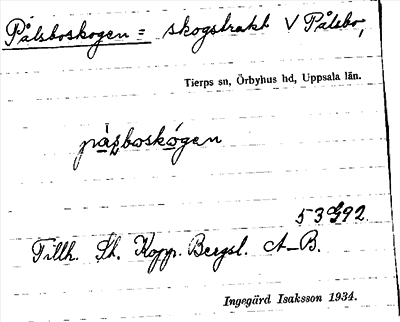 Pålsboskogen = skogstrakt V Pålsbo,
Tierps sn, Örbyhus hd, Uppsala län.
pàḷboskógen
53G92.
Tillh. St. Kopp. Bergsl. A-B.
Ingegärd Isaksson 1934.